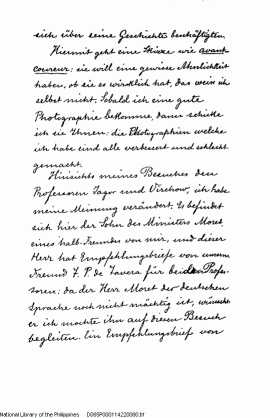 sich über seine Geschichte beschäftigten.
Hiermit geht eine Skizze wie avant-
coureur; sie will eine gewisse Ähnlichkeit
haben, ob sie es wirklich hat, das weiss ich
selbst nicht. Sobald ich eine gute
Photographie bekomme, dann schicke
ich sie Ihnen: die Photographien welche
ich habe sind alle verkleust und schlecht
gemacht.
Hinsichts meines Besuches den
Professoren Jagor und Virchow, ich habe
meine Meinung verändert. Es befindet
sich hier der Sohn des Ministers Moret,
eines halb-Freundes von mir, und dieser
Herr hat Empfehlungsbriefe von unserem
Freund T. P. de Tavera für beiden Profes-
soren; da der Herr Moret der deutschen
Sprache noch nicht mächtig ist, wünsche
er ich mochte ihn auf diesem Besuch
begleiten. Ein Empfehlungsbrief von
National Library of the Philippines D085P000114220080.tif